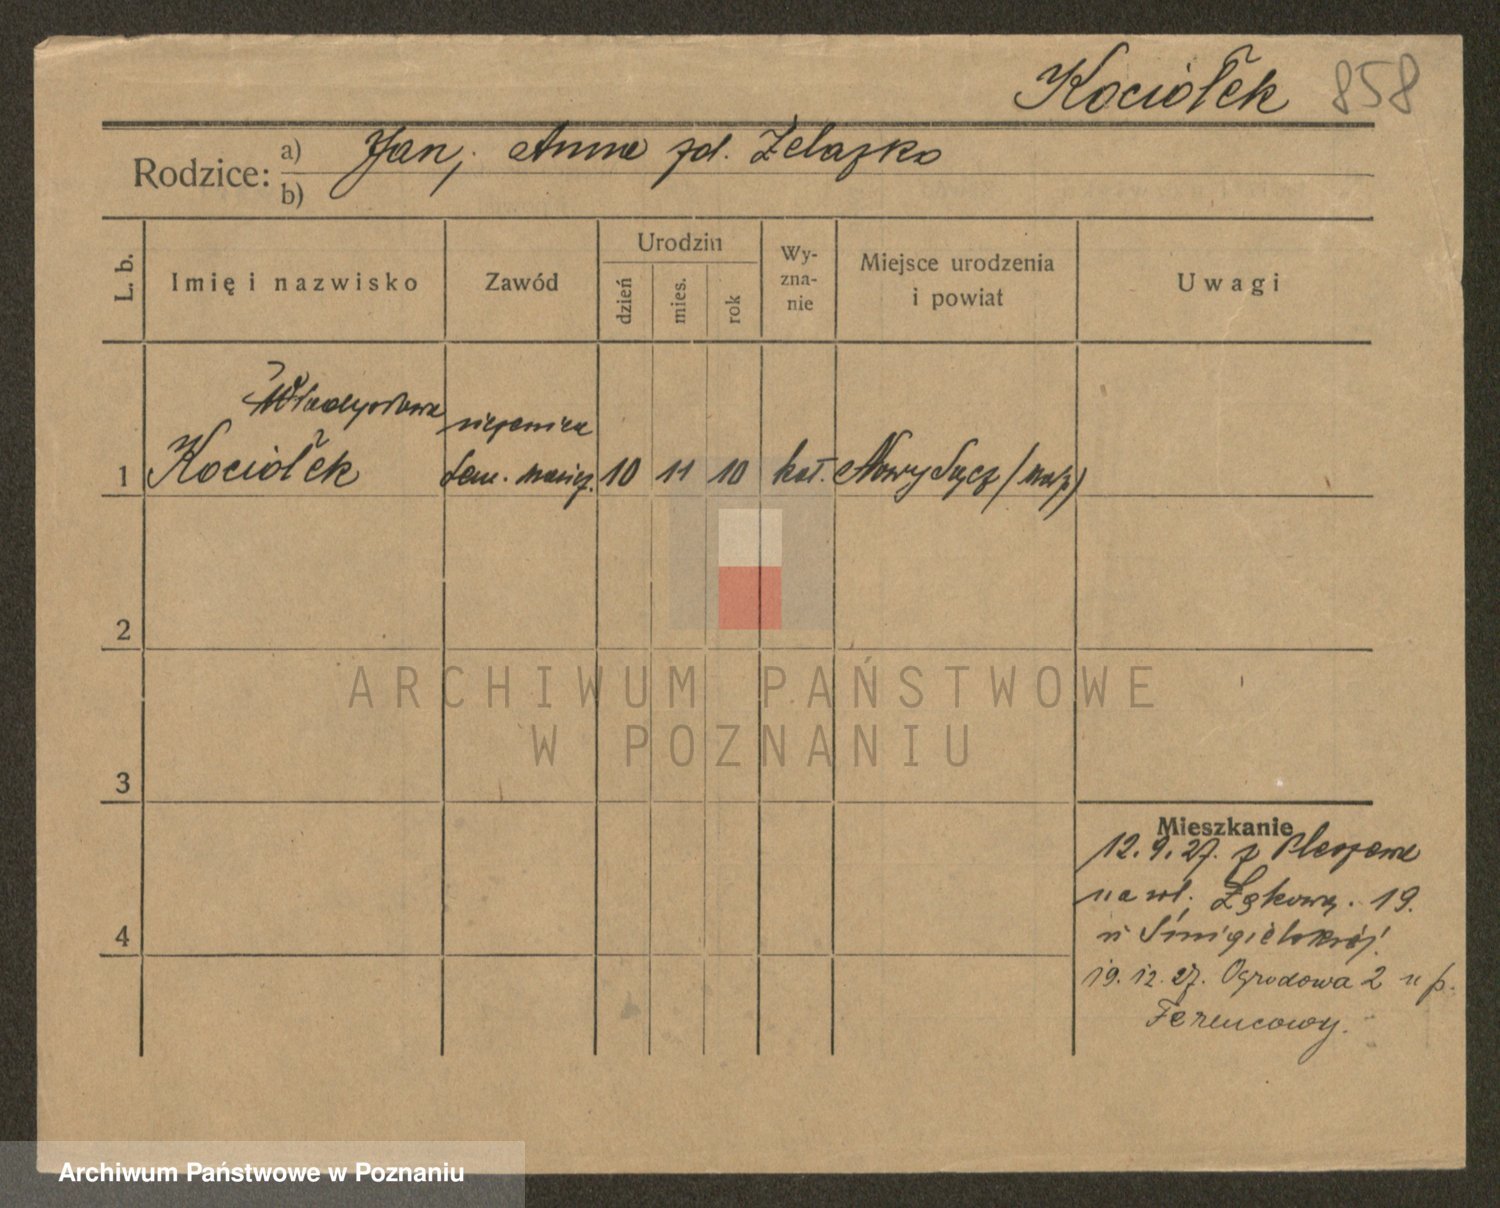 Kociołek 858
Rodzice: a) Jan, Anna zd. Żelazko
b)
L. b. Imię i nazwisko Zawód Urodzin dzień mies. rok Wyznanie Miejsce urodzenia i powiat Uwagi
Władysława uczenica
1 Kociołek sem. naucz. 10 11 10 kat. Nowy Sącz (małp)
2
3
4
Mieszkanie
12.9.27. z Pleszewa
na ul. Łąkową. 19.
u Śmigielskiej.
19.12.27. Ogrodowa 2 u p.
Ferencowy.
ARCHIWUM PAŃSTWOWE
W POZNANIU
Archiwum Państwowe w Poznaniu